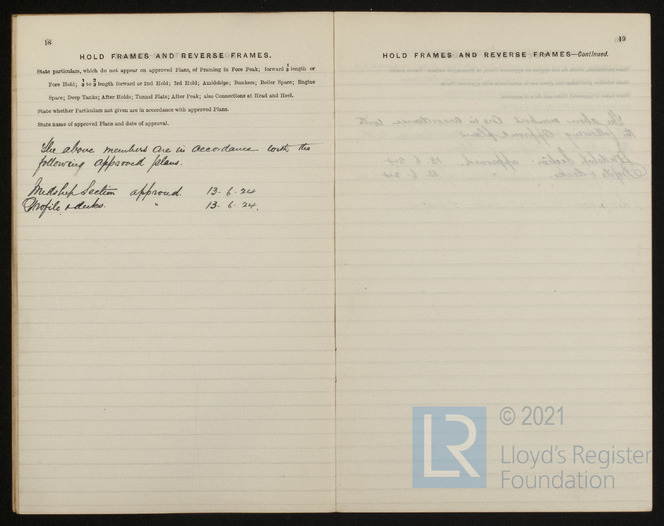 18
HOLD FRAMES AND REVERSE FRAMES.
State particulars, which do not appear on approved Plans, of Framing in Fore Peak; forward ⅕ length or
Fore Hold; ⅕ to ⅖ length forward or 2nd Hold; 3rd Hold; Amidships; Bunkers; Boiler Space; Engine
Space; Deep Tanks; After Holds; Tunnel Flats; After Peak; also Connections at Head and Heel.
State whether Particulars not given are in accordance with approved Plans.
State name of approved Plans and date of approval.
The above members are in accordance with the
following approved plans.
Midship Section approved. 13. 6. 24
Profile & decks. " 13. 6. 24.
19
HOLD FRAMES AND REVERSE FRAMES—Continued.
LR © 2021
Lloyd's Register
Foundation